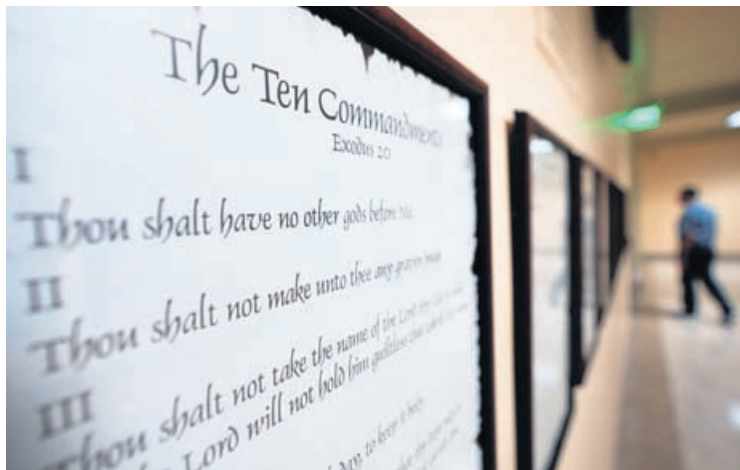 The Ten Commandments
Exodus 20
I
Thou shalt have no other gods before Me
II
Thou shalt not make unto thee any graven image
III
Thou shalt not take the name of the Lord thy God
the Lord will not hold him guiltless that
day, to keep it holy